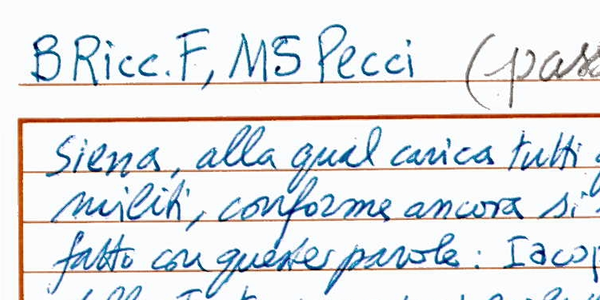 B Ricc. F, MS Pecci (pass
Siena, alla qual carica tutti
militi, conforme ancora si
fatto con queste parole: Iacop